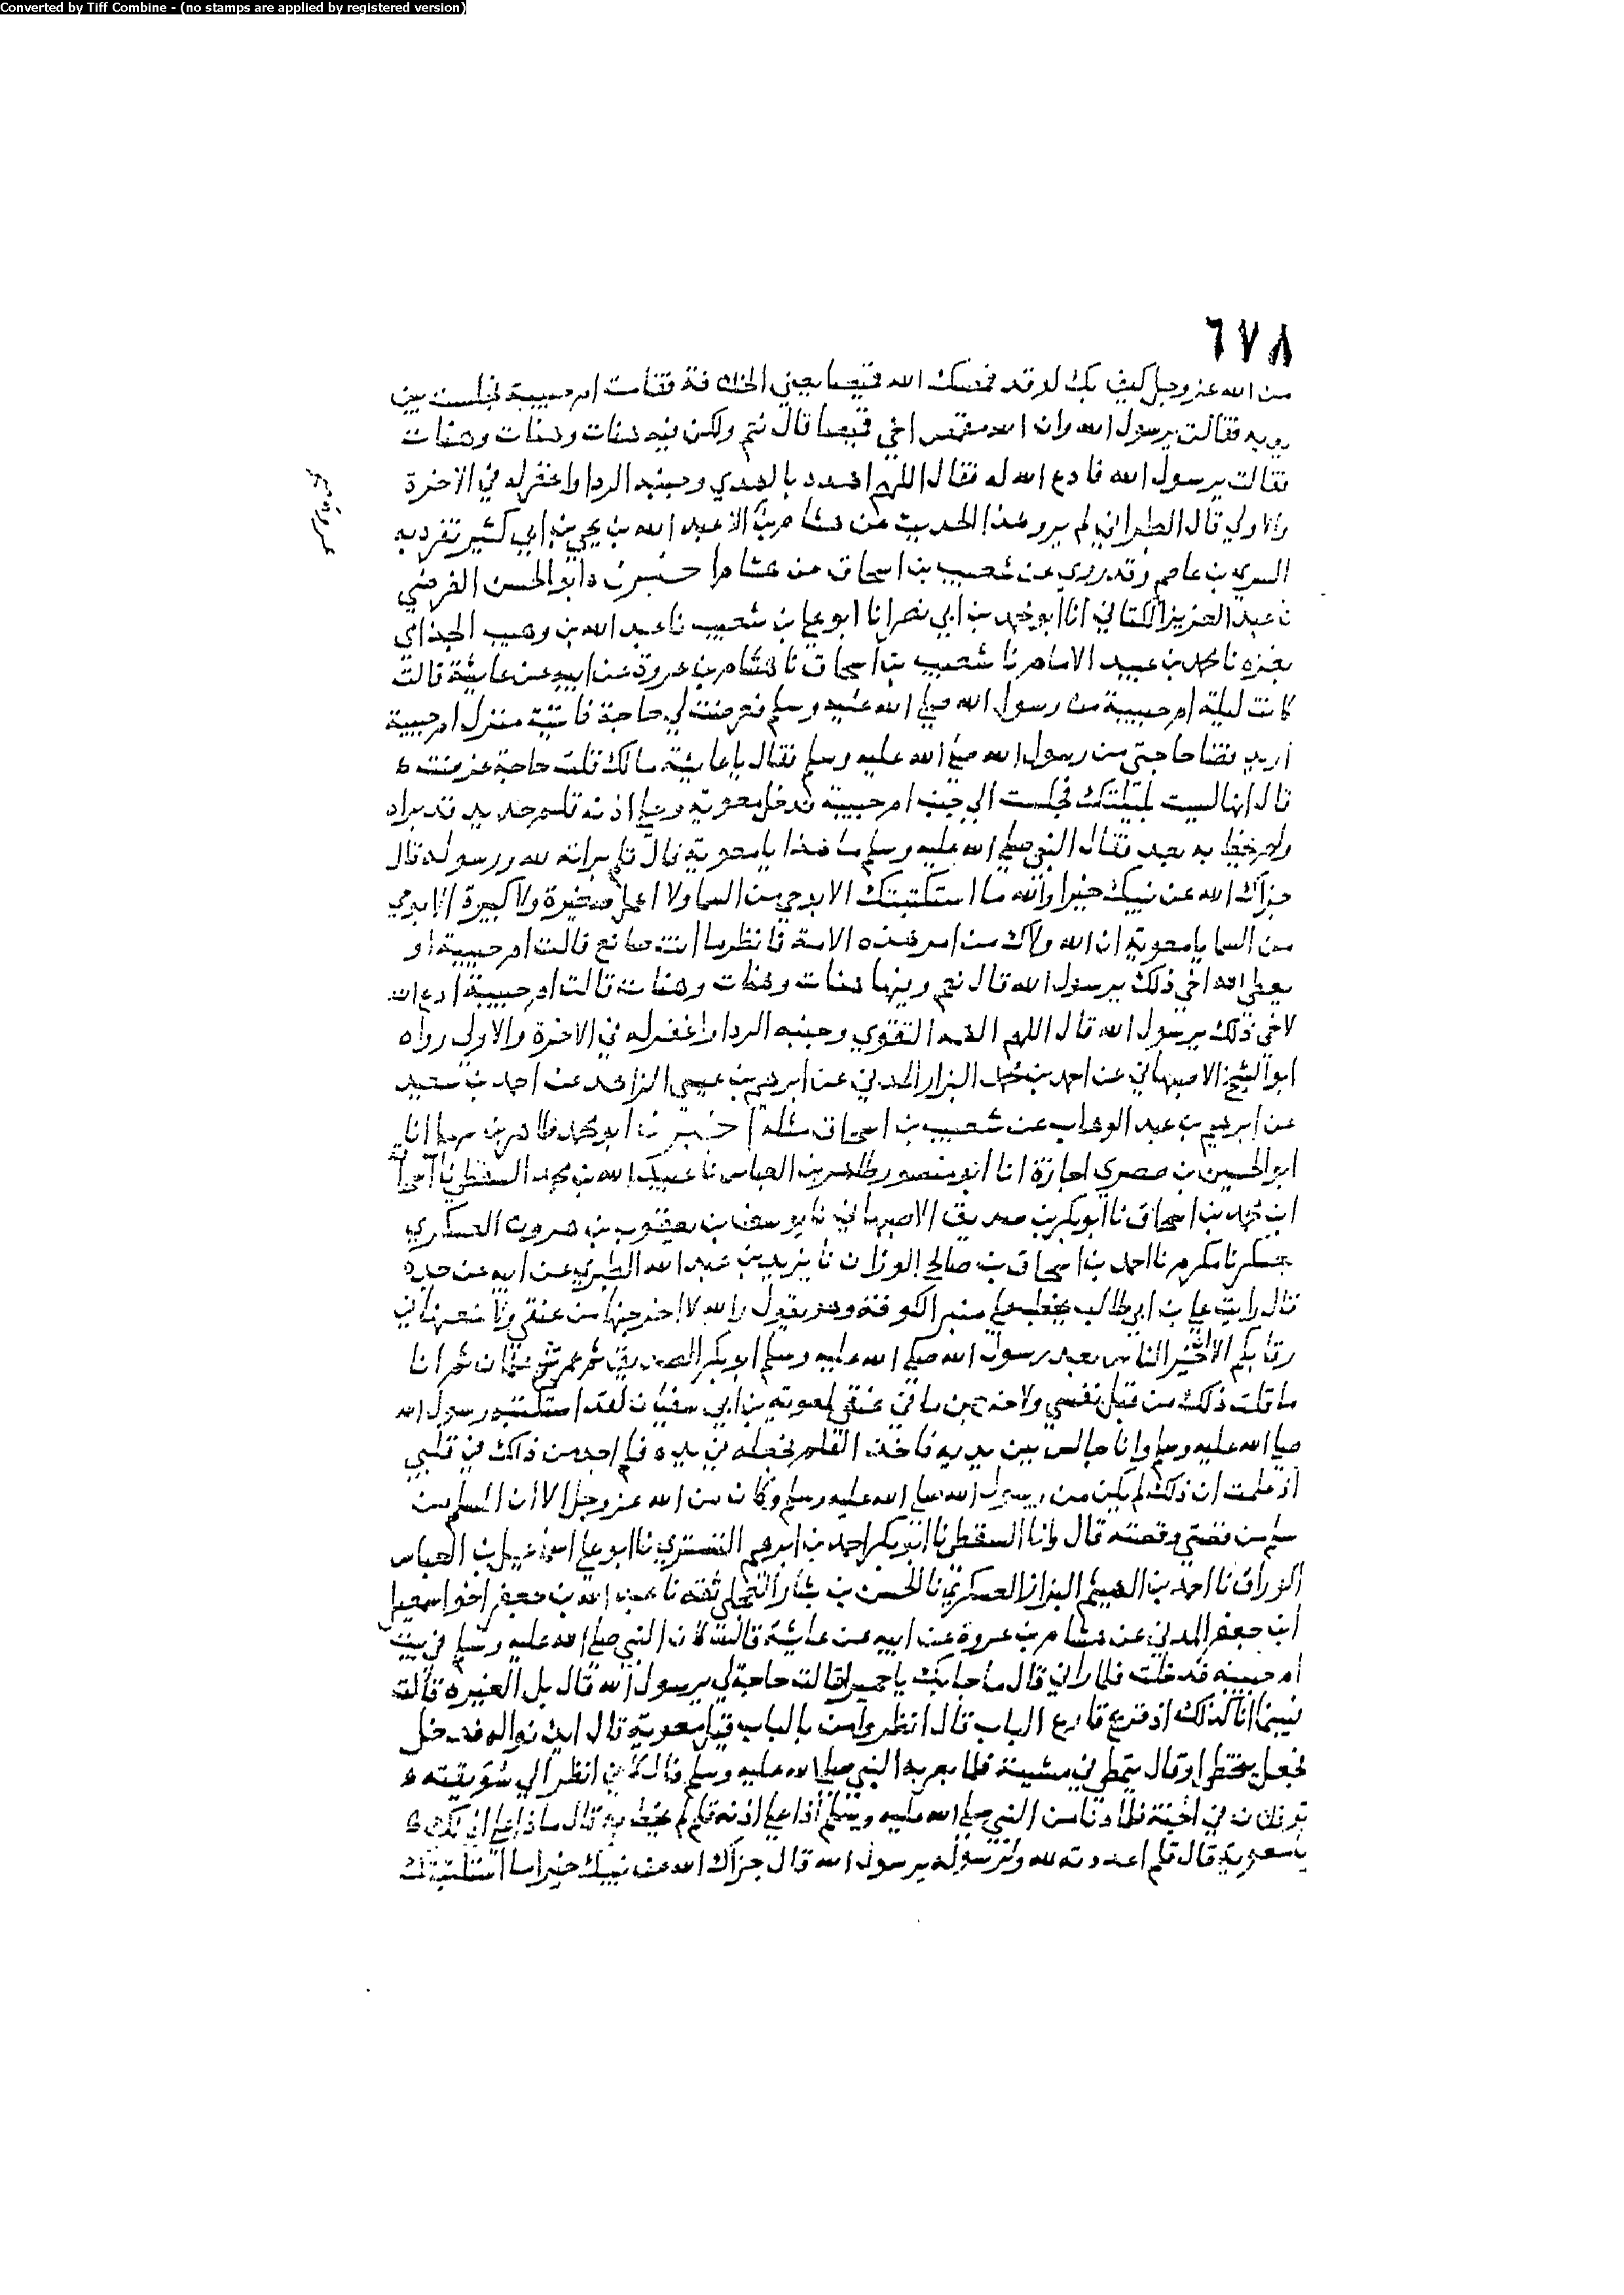 Converted by Tiff Combine - (no stamps are applied by registered version)
٦٧٨
من الله عز وجل كيف بك لو قد قمصك الله قميصا يعني الخلافة فقامت ام حبيبة فجلست بين
يديه فقالت يرسول الله وان الله مقمص اخي قميصا قال نعم ولكن فيه هنات وهنات وهنات
فقالت يرسول الله فادع الله له فقال اللهم اهده بالهدي وجنبه الردا واغفر له في الاخرة
والاولي قال الطبراني لم يرو هذا الحديث عن هشام الا عبد الله بن يحيي بن ابي كثير تفرد به
السري بن عاصم وقد روي عن شعيب بن اسحاق عن هشام اخبرناه ابو الحسن الفرضي
نا عبد العزيز الكتاني انا ابو محمد بن ابي نصر انا ابو علي بن شعيب نا عبد الله بن وهيب الجذامي
بغزه نا محمد بن عبيد الامام نا شعيب بن اسحاق نا هشام بن عروة عن ابيه عن عايشة قالت
كانت ليلة ام حبيبة من رسول الله صلي الله عليه وسلم فعرضت لي حاجة فاتيت منزل ام حبيبة
اريد قضا حاجتي من رسول الله صلي الله عليه وسلم فقال يا عايشة مالك قلت حاجة عرضت
قال انها ليست بليلتك فجلست الي جنب ام حبيبة فدخل معوية وعلي اذنه قلم جديد قد براه
ولم يخط به بعد فقال النبي صلي الله عليه وسلم ما هذا يا معوية قال قلم بريته لله ورسوله قال
جزاك الله عن نبيك خيرا والله ما استكتبتك الا بوحي من السما ولا اعمل صغيرة ولا كبيرة الا بوحي
من السما يا معوية ان الله ولاك من امر هذه الامة فانظر ما انت صانع قالت ام حبيبة او
يعطي الله اخي ذلك يرسول الله قال نعم وفيها هنات وهنات وهنات قالت ام حبيبة ادع الله
لاخي ذلك يرسول الله قال اللهم الهمه التقوي وجنبه الردا واغفر له في الاخرة والاولي رواه
ابو الشيخ الاصبهاني عن احمد بن محمد البزار المدني عن ابرهيم بن عيسي الزاهد عن احمد بن سعيد
عن ابرهيم بن عبد الوهاب عن شعيب بن اسحاق مثله اخبرنا ابو محمد طاهر بن سهل انا
ابو الحسين بن مصري اجازة انا ابو منصور طاهر بن العباس نا عبيد الله بن محمد السقطي نا
ابن محمد بن اسحاق نا ابو بكر بن صديق الاصبهاني نا يوسف بن يعقوب بن هرون العسكري
بعسكر مكرم نا احمد بن اسحاق بن صالح الوزان نا يزيد بن عبد الله الطبري عن ابيه عن جده
قال رايت علي بن ابي طالب يخطب علي منبر الكوفة وهو يقول والله لاخرجنها من عنقي ولاضعنها في
رقابكم الا ان خير الناس بعد رسول الله صلي الله عليه وسلم ابو بكر الصديق ثم عمر ثم عثمان ثم انا
ما قلت ذلك من قبل نفسي ولاخرجن ما في عنقي لمعوية بن ابي سفيان لقد استكتبه رسول الله
صلي الله عليه وسلم وانا جالس بين يديه فاخذ القلم فجعله في يده فلم اجد من ذلك في قلبي
اذ علمت ان ذلك لم يكن من رسول الله صلي الله عليه وسلم وكان من الله عز وجل الا ان المسلم من
سلم من قصتي وقصته قال وانا السقطي نا ابو بكر احمد بن ابرهيم التستري نا ابو علي اسمعيل بن العباس
الوراق نا احمد بن الهيثم البزاز العسكري نا الحسن بن بشار ثقة نا عبد الله بن جعفر اخو اسمعيل
ابن جعفر المدني عن هشام بن عروة عن ابيه عن عايشة قالت كان النبي صلي الله عليه وسلم في بيت
ام حبيبة فدخلت فلما راني قال ما جا بك يا حميرا قالت حاجة لي يرسول الله قال بل الغيره قالت
فبينما انا كذلك اذ قرع قارع الباب قال انظروا من بالباب قيل معوية قال ايذنوا له فدخل
فجعل يخطر او قال يتمطي في مشيته فلما بصر به النبي صلي الله عليه وسلم قال كاني انظر الي سويقيه
ترفلان في الجنة فلما دنا من النبي صلي الله عليه وسلم اذا علي اذنه قلم لم يخط به قال ماذا علي اذنك
يا معوية قال قلم اعددته لله ولرسوله يرسول الله قال جزاك الله عن نبيك خيرا ما استكتبتك